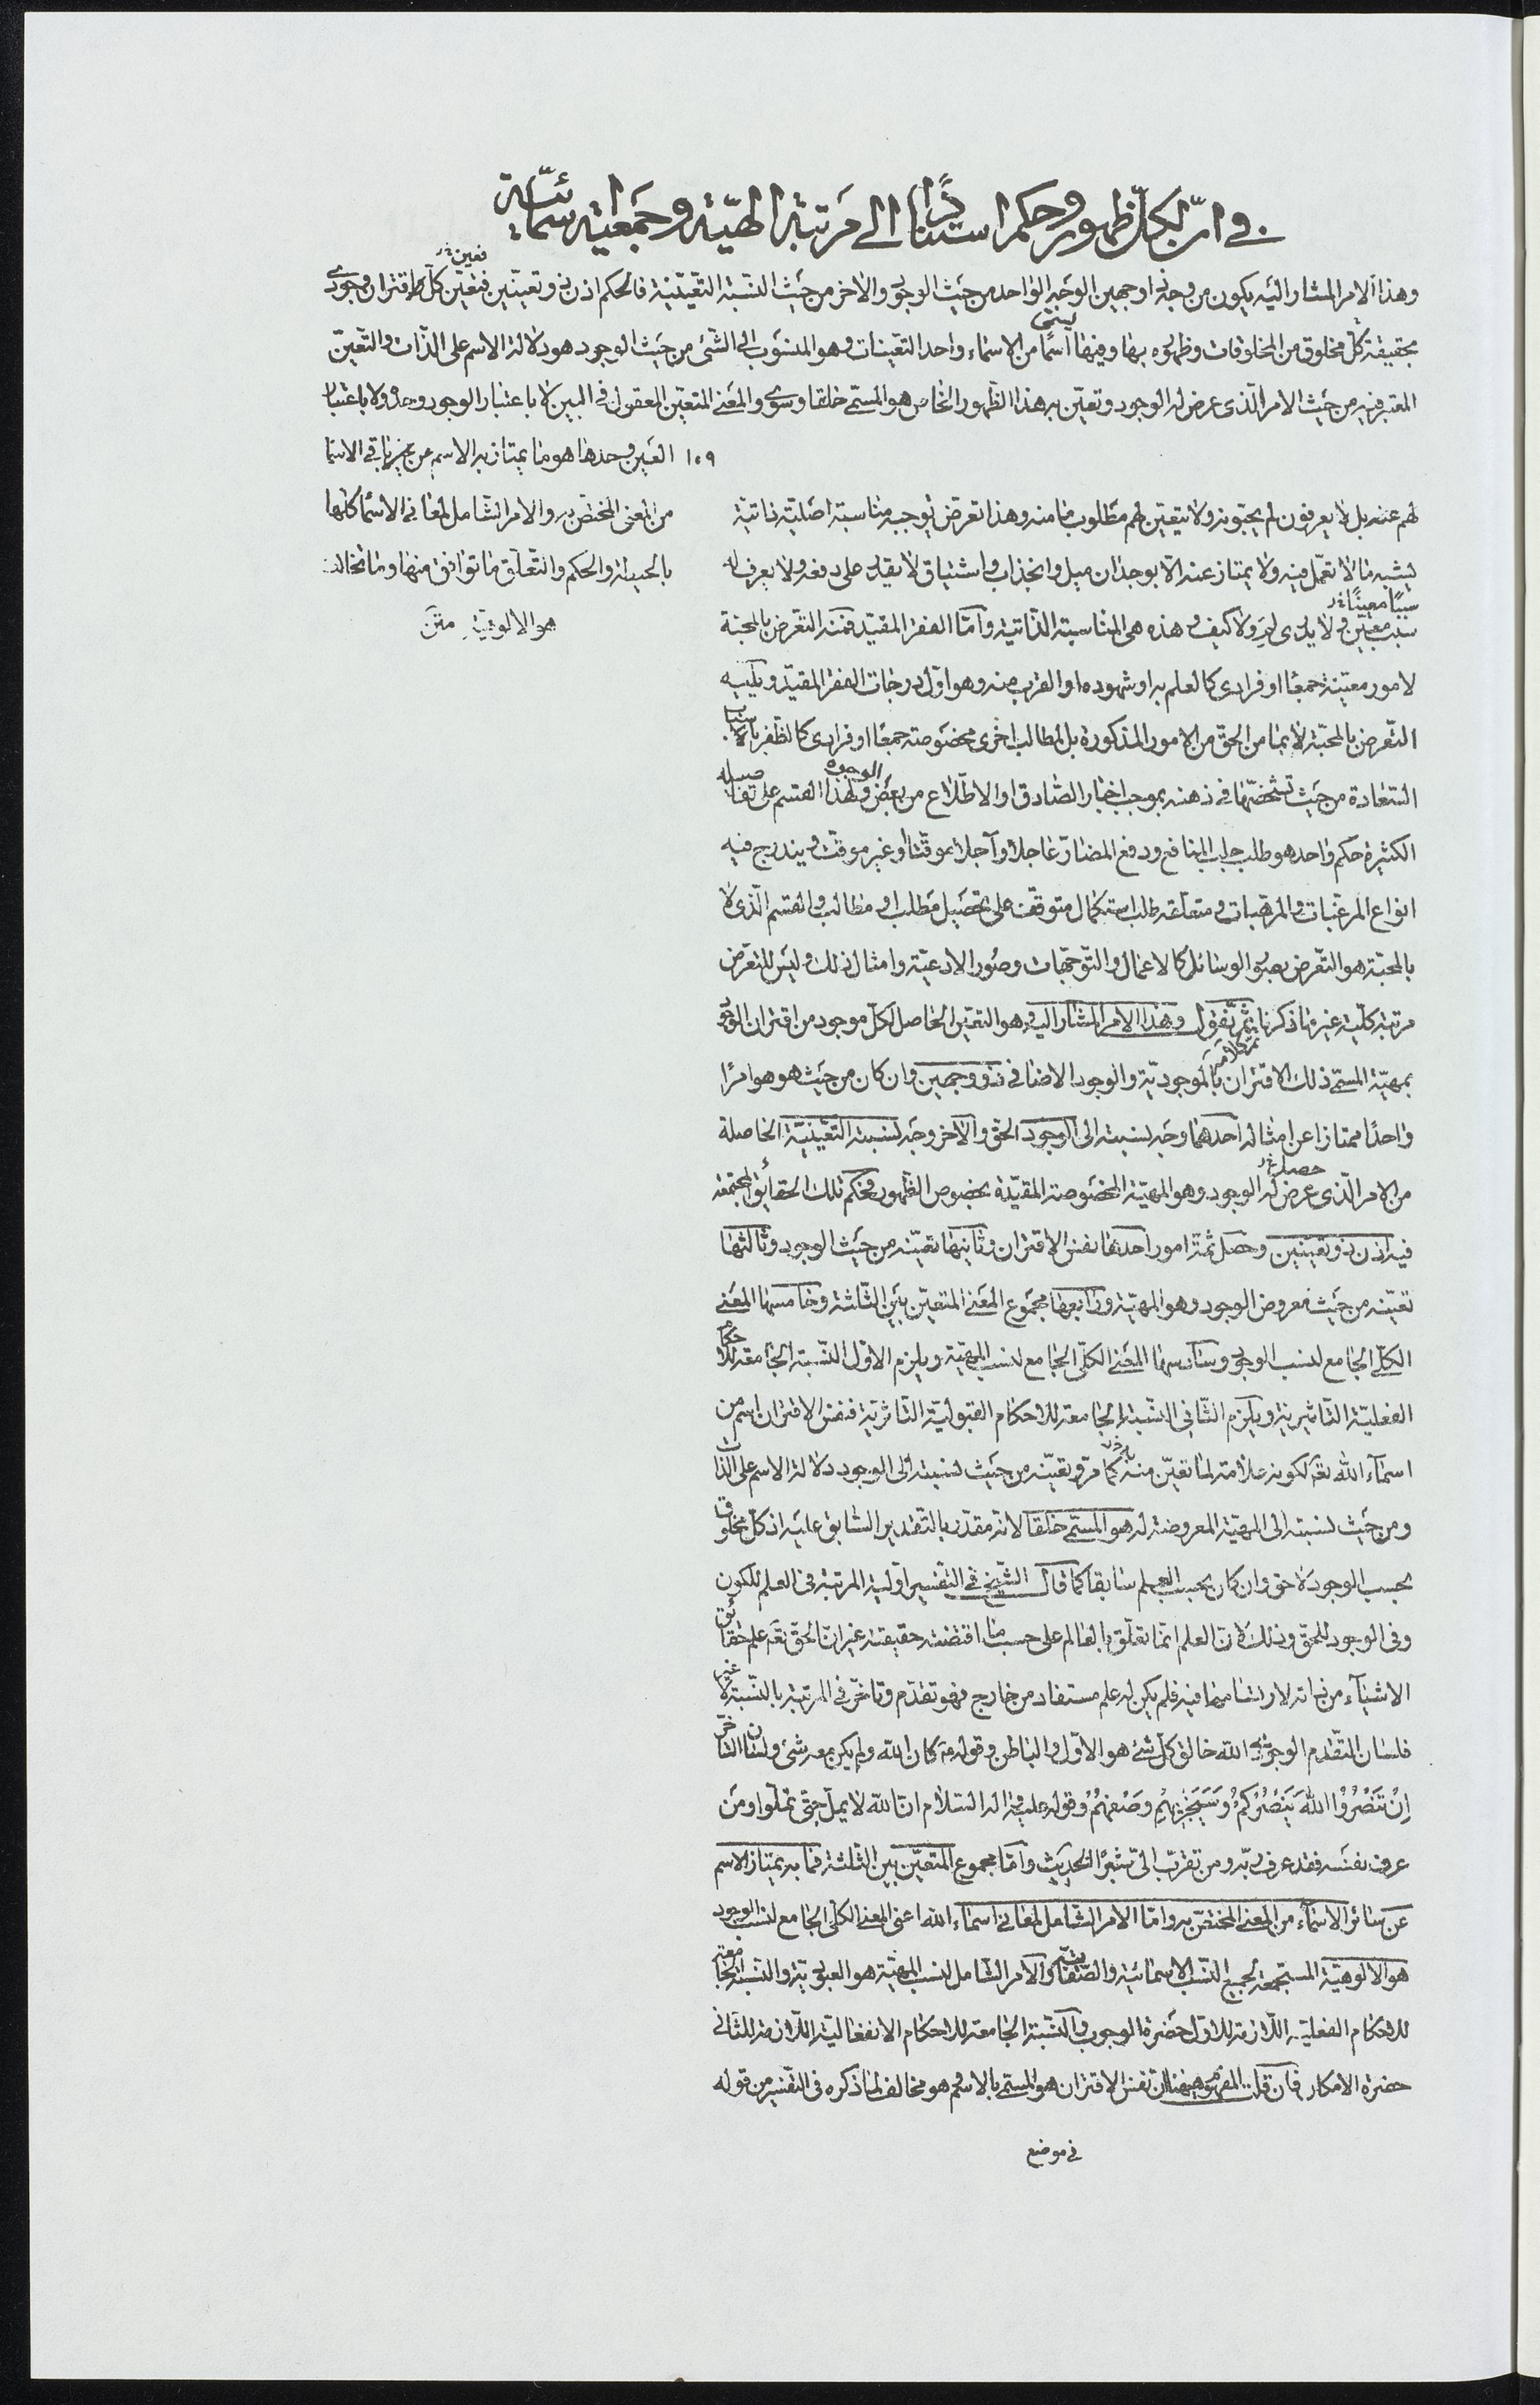 في ان لكل ظهور وحكم استنادا الى مرتبة الهية وجمعية اسمائية
وهذا الامر المشار اليه يكون من وجه ذا وجهين الوجه الواحد من حيث الوجود والاخر من حيث النسبة التعينية فالحكم اذن ذو تعينين فتعين كل اقتران وجودي
بحقيقة كل مخلوق من المخلوقات وظهوره بها وفيها يسمى اسما من الاسماء واحد التعينات وهو المنسوب الى الشئ من حيث الوجود هو دلالة الاسم على الذات والتعين
المعتبر فيه من حيث الامر الذى عرض له الوجود وتعين به هذا الظهور الخاص هو المسمى خلقا وسوى والمعنى المتعين المعقول في البين لا باعتبار الوجود وحده ولا باعتبار
١٠٩ العين وحدها هو ما يمتاز به الاسم عن غيره باقي الاسما
من المعنى المختص به والامر الشامل لمعاني الاسما كلها
بالحيطة والحكم والتعلق ما توافق منها وما تخالف
هو الالوهية متن
لهم عنه بل لا يعرفون لم يحبونه ولا يتعين لهم مطلوب ما منه وهذا تعرض توجبه مناسبة اصلية ذاتية
ليشبه ما لا تعمل فيه ولا يمتاز عنه الا بوجدان ميل وانجذاب واشتياق لا يقدر على دفعه ولا يعرف له
سببا معينا خ
سبب معين ولا يدرى لم ولا كيف هذه هى المناسبة الذاتية واما الفقر المقيد فمنه التعرض بالمحبة
لامور معينة جمعا او فرادى كالعلم به او شهوده او القرب منه وهو اول درجات الفقر المقيد ويليه
التعرض بالمحبة لا بما من الحق من الامور المذكورة بل لمطالب اخرى مخصوصة جمعا او فرادى كالظفر باسباب
السعادة من حيث تشخصها فى ذهنه بموجب اخبار الصادق او الاطلاع من بعض الوجوه ولهذا القسم على تفاصيله
الكثيرة حكم واحد هو طلب جلب المنافع ودفع المضار عاجلا وآجلا موقتا او غير موقت ويندرج فيه
انواع المرغبات والمرهبات ومتعلقه طلب استكمال متوقف على تحصيل مطلب او مطالب والقسم الذى لا
بالمحبة هو التعرض بصور الوسائل كالاعمال والتوجهات وصور الادعية وامثال ذلك وليس للتعرض
مرتبة كلية غير ما ذكرنا ثم نقول وهذا الامر المشار اليه وهو التعين الحاصل لكل موجود من اقتران الوجود
بمهية المسمى ذلك الاقتران بالموجودية والوجود الاضافى ذو وجهين وان كان من حيث هو هو امرا
واحدا ممتازا عن امثاله احدهما وجه نسبته الى الوجود الحق والاخر وجه نسبته التعينية الحاصلة
من الامر الذى عرض له الوجود وهو المهية المخصوصة المقيدة بخصوص الظهور فحكم تلك الحقائق المجتمعة
فيه اذن ذو تعينين وحصل ثمة امور احدها نفس الاقتران وثانيها تعينه من حيث الوجود وثالثها
تعينه من حيث معروض الوجود وهو المهية ورابعها مجموع المعنى المتعين بين الثلثة وخامسها المعنى
الكلى الجامع لنسب الوجود وسادسها المعنى الكلى الجامع لنسب المهية ويلزم الاول النسبة الجامعة للاحكام
الفعلية التاثيرية ويلزم الثانى النسبة الجامعة للاحكام القبولية التاثرية فنفس الاقتران اسم من
اسمآء الله تعه لكونه علامة لما تعين منه كما مر وتعينه من حيث نسبته الى الوجود دلالة الاسم على الذات
ومن حيث نسبته الى المهية المعروضة له هو المسمى خلقا لانه مقدر بالتقدير السابق عليه اذ كل مخلوق
بحسب الوجود لاحق وان كان بحسب العلم سابقا كما قال الشيخ فى التفسير اولية المرتبة فى العلم للكون
وفى الوجود للحق وذلك لان العلم انما تعلق بالعالم على حسب ما اقتضته حقيقته غير ان الحق تعه علم حقائق
الاشيآء من ذاته لارتسامها فيه فلم يكن له علم مستفاد من خارج فهو تقدم وتاخر فى المرتبة بالنسبة لا غير
فلسان التقدم الوجودى الله خالق كل شئ هو الاول والباطن وقوله ع كان الله ولم يكن معه شئ ولسان التاخر
ان تنصروا الله ينصركم وسيجزيهم وصفهم وقوله عليه وآله السلام ان الله لا يمل حتى تملوا ومن
عرف نفسه فقد عرف ربه ومن تقرب الى شبرا الحديث واما مجموع المتعين بين الثلثة فما به يمتاز الاسم
عن سائر الاسمآء من المعنى المختص به واما الامر الشامل لمعانى اسمآء الله اعنى المعنى الكلى الجامع لنسب الوجود
هو الالوهية المستجمعة لجميع النسب الاسمائية والصفاتية والامر الشامل لنسب المهية هو العبودية والنسبة الجامعة
للاحكام الفعلية اللازمة للاول حضرة الوجوب والنسبة الجامعة للاحكام الانفعالية اللازمة للثانى
حضرة الامكان فان قلت المفهوم ههنا ان نفس الاقتران هو المسمى بالاسم وهو مخالف لما ذكره فى التفسير من قوله
فى موضع